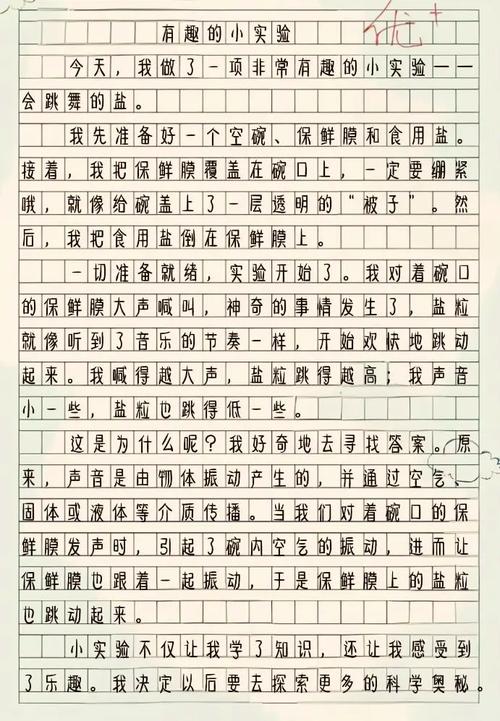 有趣的小实验
优+
今天，我做了一项非常有趣的小实验——
会跳舞的盐。
我先准备好一个空碗、保鲜膜和食用盐。
接着，我把保鲜膜覆盖在碗口上，一定要绷紧
哦，就像给碗盖上了一层透明的“被子”。然
后，我把食用盐倒在保鲜膜上。
一切准备就绪，实验开始了。我对着碗口
的保鲜膜大声喊叫，神奇的事情发生了，盐粒
就像听到了音乐的节奏一样，开始欢快地跳动
起来。我喊得越大声，盐粒跳得越高；我声音
小一些，盐粒也跳得低一些。
这是为什么呢？我好奇地去寻找答案。原
来，声音是由物体振动产生的，并通过空气、
固体或液体等介质传播。当我们对着碗口的保
鲜膜发声时，引起了碗内空气的振动，进而让
保鲜膜也跟着一起振动，于是保鲜膜上的盐粒
也跳动起来。
小实验不仅让我学了知识，还让我感受到
了乐趣。我决定以后要去探索更多的科学奥秘。